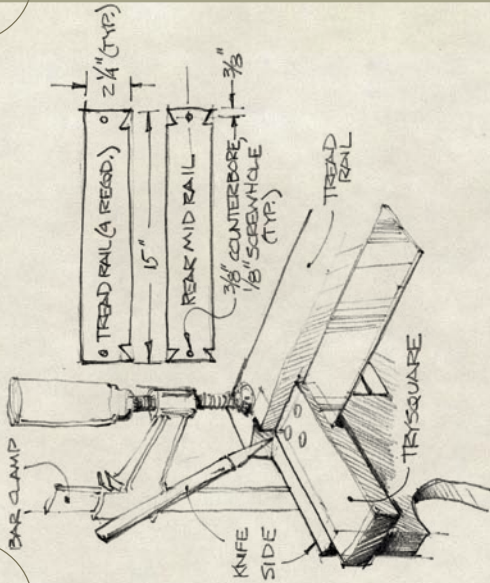 2 1/4" (TYP.)
TREAD RAIL (4 REQD.)
15"
REAR MID RAIL
3/8"
3/8" COUNTERBORE,
1/8" SCREWHOLE
(TYP.)
TREAD
RAIL
BAR CLAMP
KNIFE
SIDE
TRYSQUARE